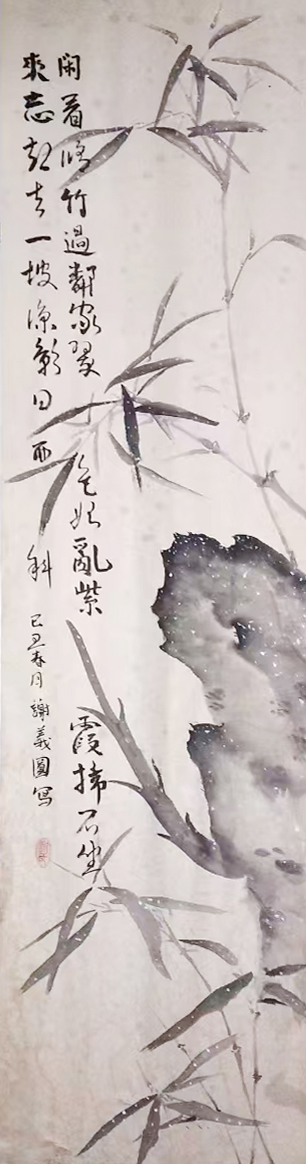 闲看修竹過鄰家翠色如亂紫霞拂石坐
來忘却去一坡涼影日西斜
己丑春月謝義圓寫